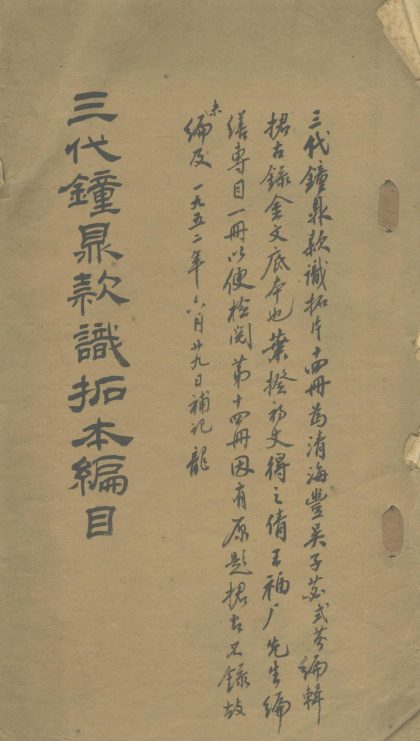 三代鐘鼎款識拓片十四冊為清海豐吳子苾式芬編輯
捃古錄金文底本也葉揆初丈得之倩王福厂先生編
繕專目一冊以便檢閱第十四冊因有原題捃古錄故
未編及 一九五二年六月廿九日補記 龍
三代鐘鼎款識拓本編目